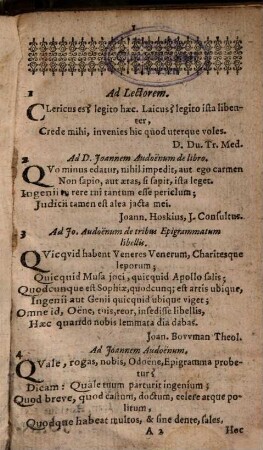 1
1 Ad Lectorem.
CLericus es? legito hæc. Laicus? legito ista liben-
ter,
Crede mihi, invenies hic quod uterque voles.
D. Du. Tr. Med.
2 Ad D. Joannem Audoënum de libro.
QVo minus edatur, nihil impedit, aut ego carmen
Non sapio, aut æras, si sapit, ista leget.
Ingenii tu rere ini tantum esse periclum;
Judicii tamen est alea jacta mei.
Joann, Hoskius, J. Consultus.
3 Ad Jo. Audoënum de tribus Epigrammatum
libellis.
QVicqvid habent Veneres Venerum, Charitesque
leporum;
Quicquid Musa joci, quicquid Apollo salis;
Quodcunque est Sophiæ, quodcunq; est artis ubique,
Ingenii aut Genii quicquid ubique viget;
Omne id, Oëne, tuis, reor, insedisse libellis,
Hæc quando nobis lemmata dia dabas.
Joan. Bovvman Theol.
4. Ad Joannem Audoënum,
QVale, rogas, nobis, Odoëne, Epigramma probe-
tur?
Dicam: Quale tuum parturit ingenium;
Quod breve, quod castum, doctum, celere atque po-
litum,
Quodque habeat multos, & sine dente, sales.
A 2 Hoc